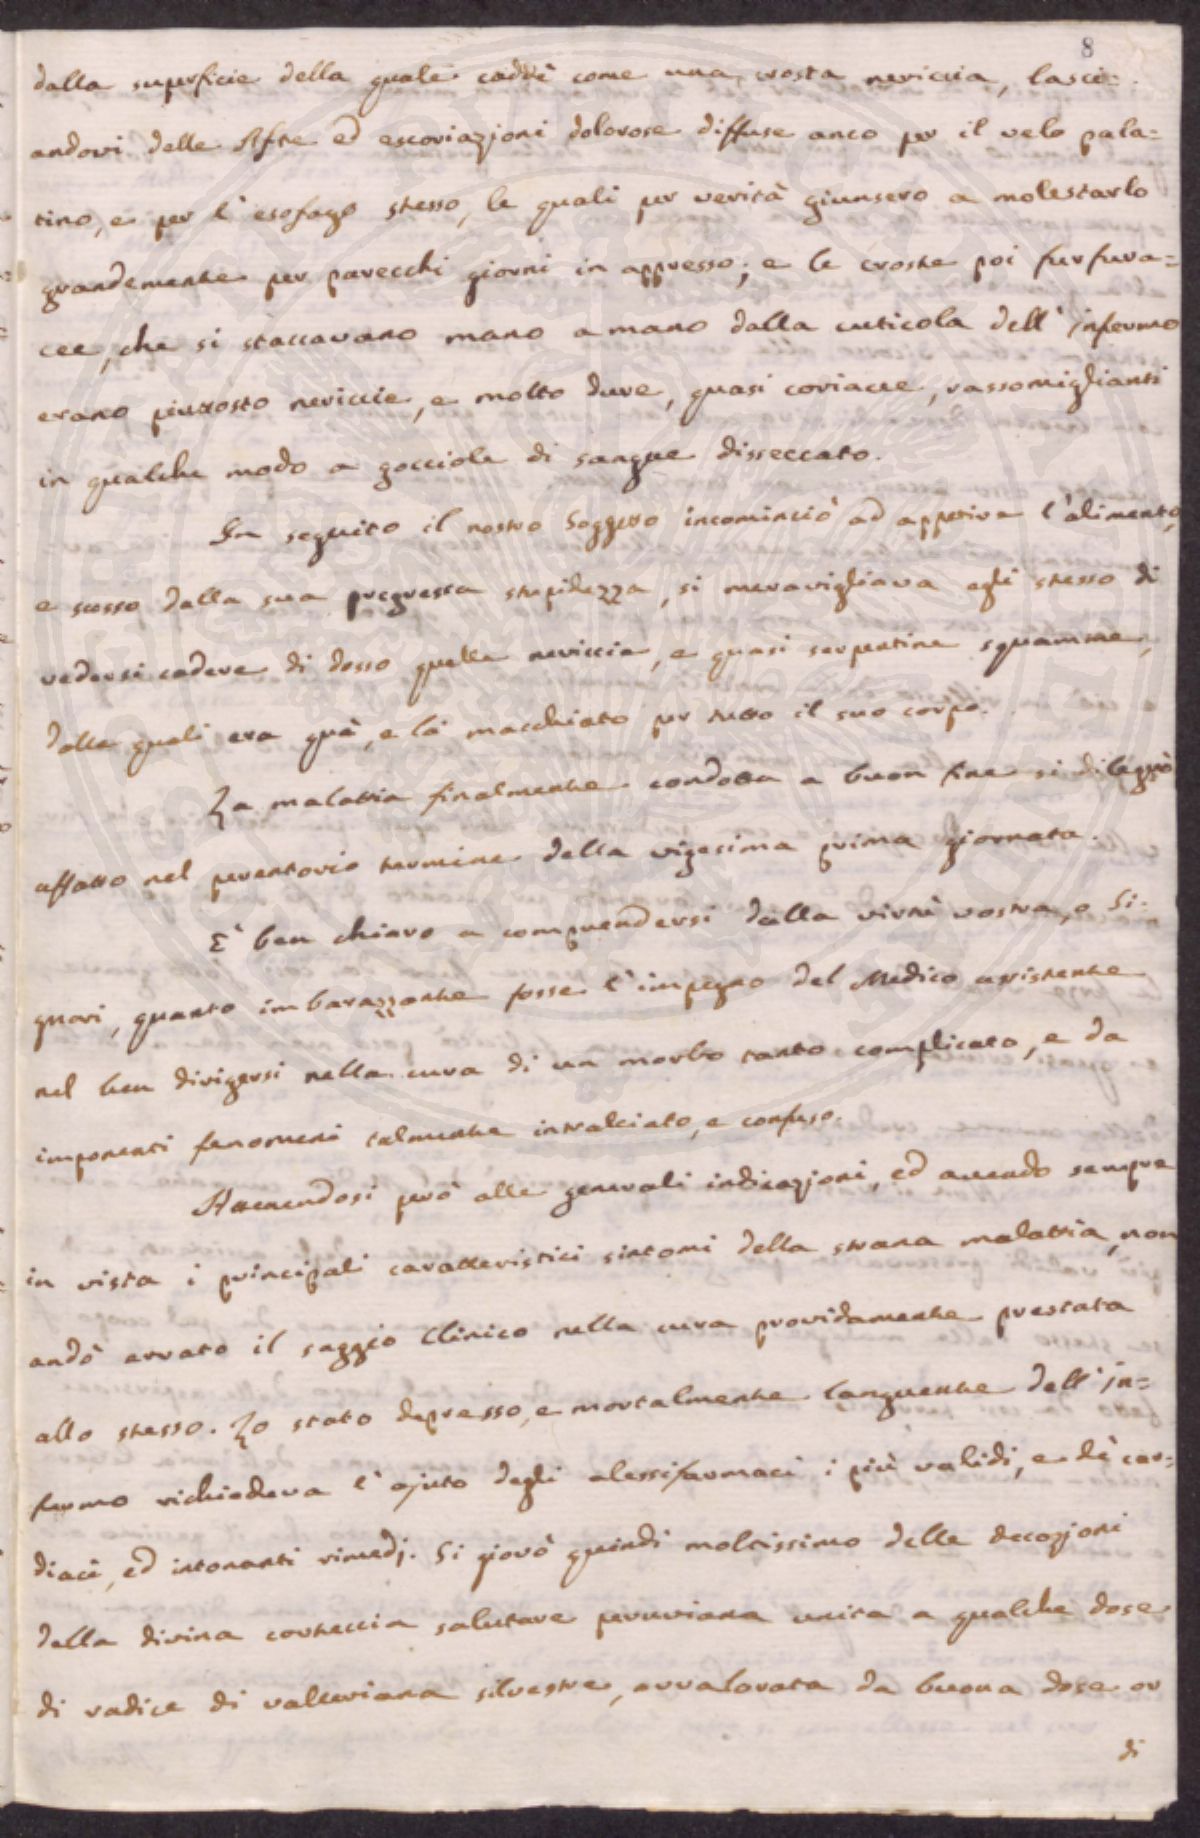 8
dalla superficie della quale caddè come una crosta nericcia, lasci=
andovi delle Afte ed escoriazioni dolorose diffuse anco per il velo pala=
tino, e per l'esofago stesso, le quali per verità giunsero a molestarlo
grandemente per parecchi giorni in appresso; e le croste poi furfura=
cee, che si staccavano mano a mano dalla cuticola dell'infermo
erano piuttosto nericcie, e molto dure, quasi coriacee, rassomiglianti
in qualche modo a gocciole di sangue disseccato.
In seguito il nostro Soggetto incominciò ad appetire l'alimento,
e scosso dalla sua pregressa stupidezza, si meravigliava egli stesso di
vedersi cadere di dosso quelle nericcie, e quasi serpentine squamme,
dalle quali era quà, e là macchiato per tutto il suo corpo.
La malattia finalmente condotta a buon fine si dileguò
affatto nel perentorio termine della vigesima prima giornata.
È ben chiaro a comprendersi dalla virtù vostra, o Si=
gnori, quanto imbarazzante fosse l'impegno del Medico assistente
nel ben dirigersi nella cura di un morbo tanto complicato, e da
imponenti fenomeni talmente intralciato, e confuso.
Attenendosi però alle generali indicazioni, ed avendo sempre
in vista i principali caratteristici sintomi della strana malattia, non
andò errato il saggio Clinico nella cura providamente prestata
allo stesso. Lo stato depresso, e mortalmente languente dell'in=
fermo richiedeva l'ajuto degli alessifarmaci i più validi, e dè car=
diaci, ed intonanti rimedj. Si giovò quindi moltissimo delle decozioni
della divina corteccia salutare peruviana unita a qualche dose
di radice di valleriana silvestre, avvalorata da buona dose or
di